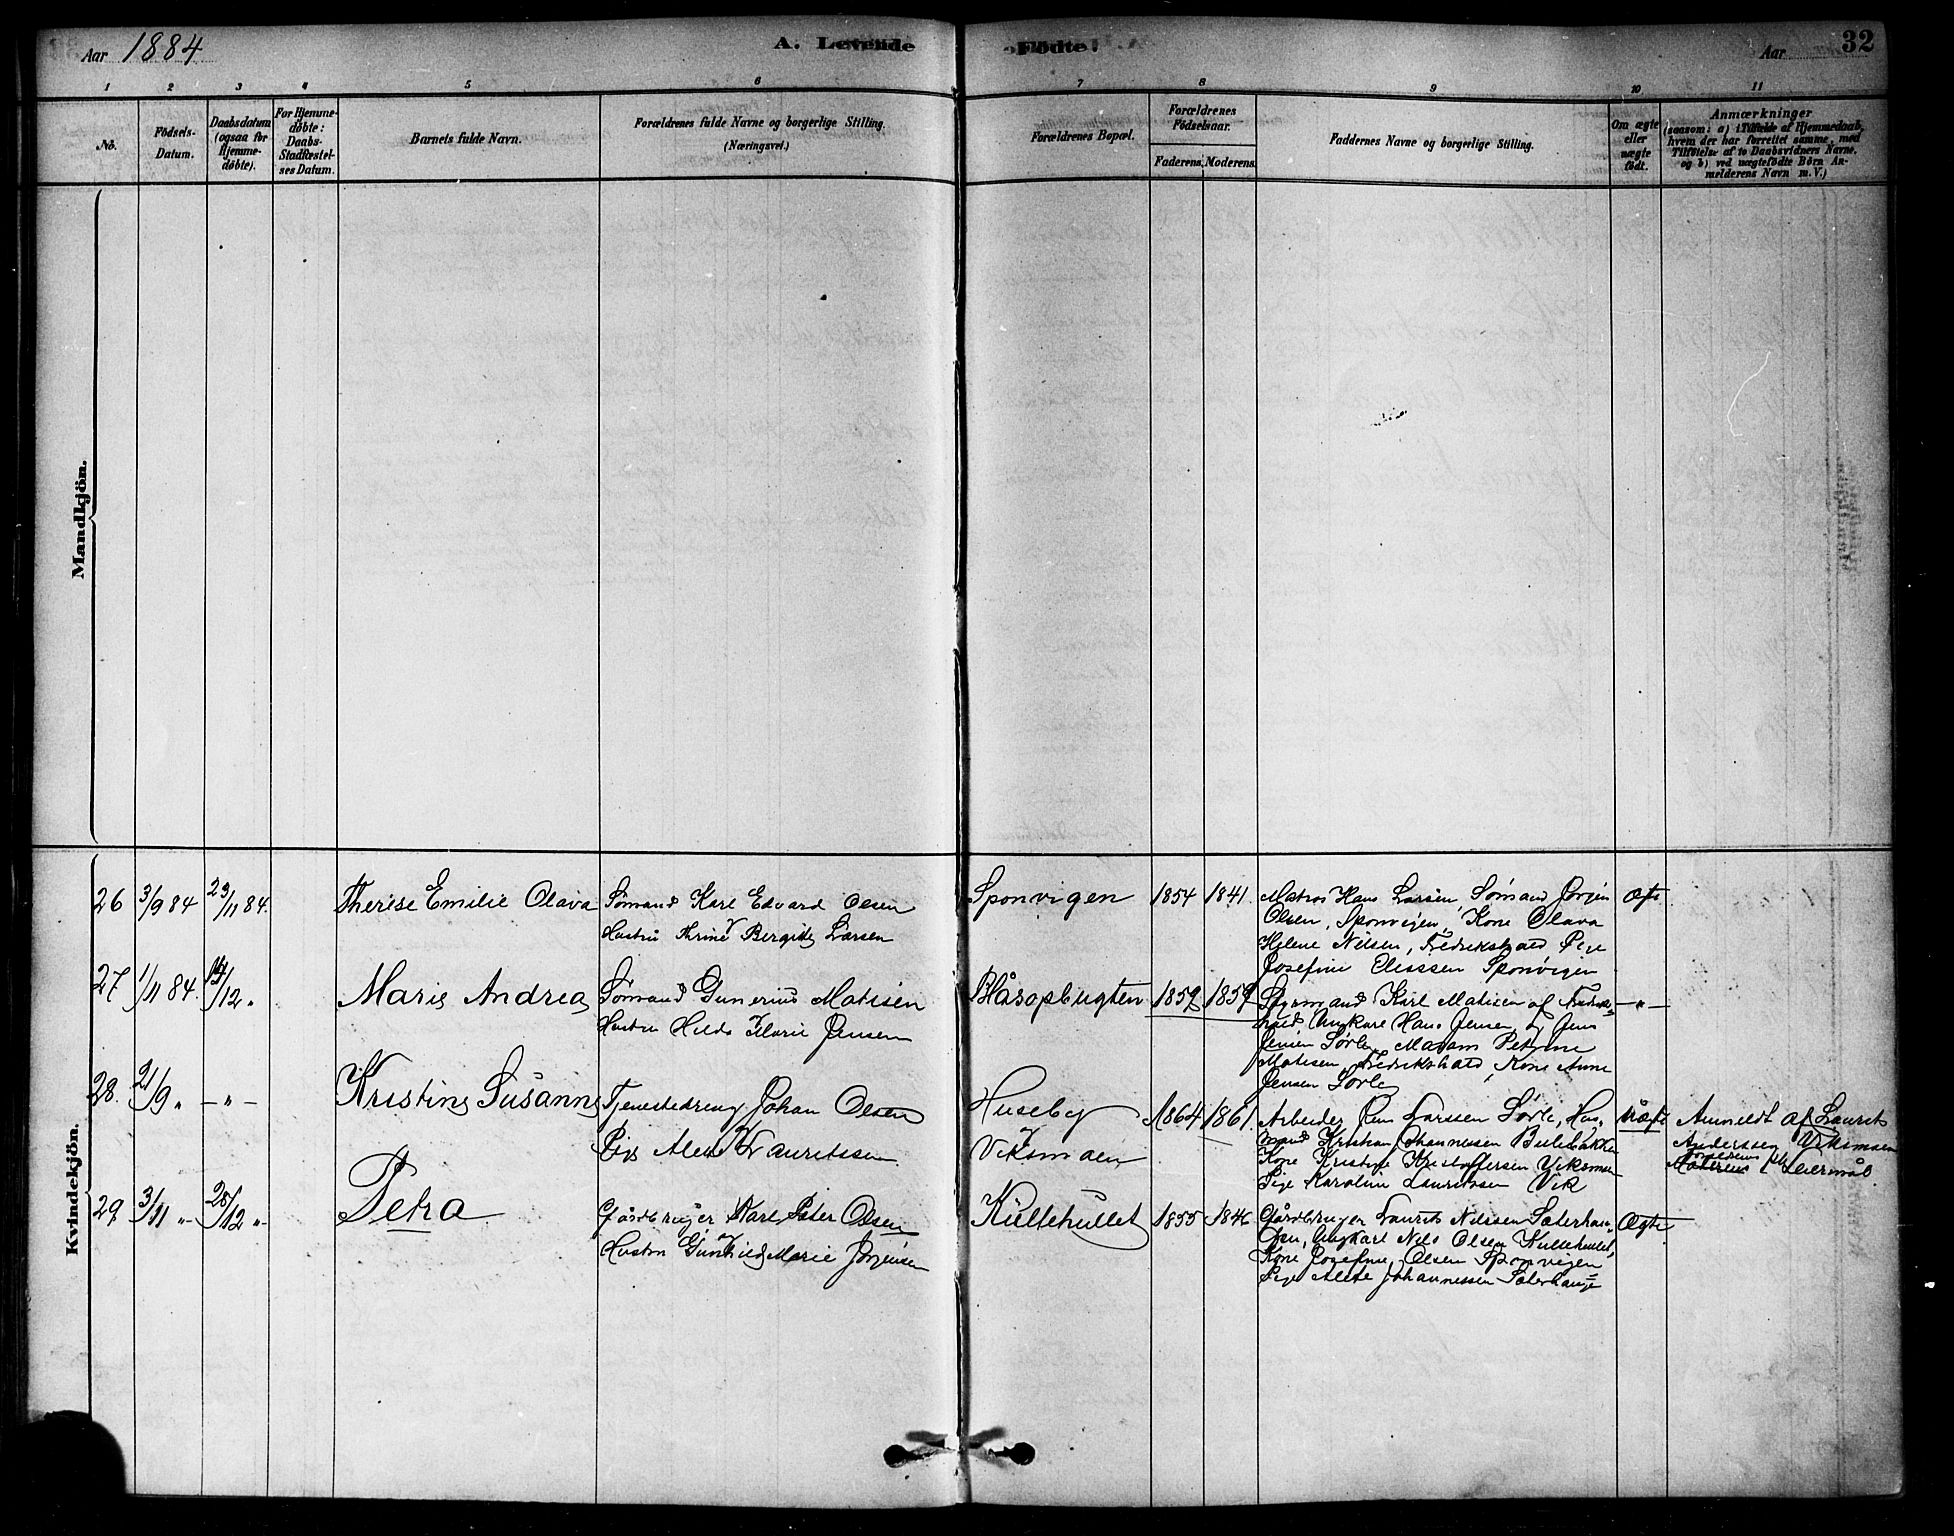 Aar 1884
A. Levende
Fødte.
Aar
32
1 2 3 4 5 6 7 8 9 10 11
No.
Födsels-
Datum.
Daabsdatum
(ogsaa for
Hjemme-
døbte).
For Hjemme-
døbte:
Daabs-
Stadfæstel-
ses Datum.
Barnets fulde Navn.
Forældrenes fulde Navne og borgerlige Stilling.
(Næringsvei.)
Forældrenes Bopæl.
Forældrenes
Fødselsaar.
Faderens. Moderens.
Faddernes Navne og borgerlige Stilling.
Om ægte
eller
uægte
født.
Anmærkninger
(saasom: a) i Tilfælde af Hjemmedaab,
hvem der har forrettet samme, med
Tilføielse af to Daabsvidners Navne,
og b) ved uægtefødte Børn An-
melderens Navn m. V.)
Mandkjön.
Kvindekjön.
26 3/9 84 23/11 84. Therese Emilie Olava
Sømand Karl Edvard Olsen
Hustru Thrine Bergitte Larsen
Sponvigen 1854 1841.
Matros Hans Larsen, Sømand Jørgen
Olsen, Sponvigen, Kone Olava
Helene Nilsen, Fredrikshald Pige
Josefine Olsen Sponvigen
27 1/11 84. 14/12 „ Marie Andrea
Sømand Gunerius Matisen
Hustru Hilda Marie Jensen
Blåsopbugten 1859 1859
Styrmand Karl Matisen af Fredriks-
hald Ungkarl Hans Jensen og Jens
Jensen Sørle, Madam Petrine
Matisen, Fredrikshald, Kone Anne
Jensen Sørle
—„—
28. 21/9 „ —„— Kristine Susanne
Tjenestedreng Johan Olsen
Pige Alette Lauritssen
Huseby
Viksmaen
1864 1861.
Arbeider Jens Larssen Sørle, Hus-
mand Kristian Johannesen Bulebakke
Kone Kristine Kristoffersen Viksmaen
Pige Karoline Lauritssen Vik
uægte
Anmeldt af Laurits
Anderssen Viksmaen
Forældrenes
Moderens 1ste Leiermål.
29. 3/11 „ 28/12 „ Petra
Gårdbruger Karl Peter Olsen
Hustru Gunhild Marie Jørgensen
Kullehullet 1855 1846
Gårdbruger Laurits Nilssen Sæterhau-
gen, Ungkarl Nils Olsen Kullehullet,
Kone Josefine Olsen Sponvigen
Pige Alette Johannessen Sæterhauge
Ægte